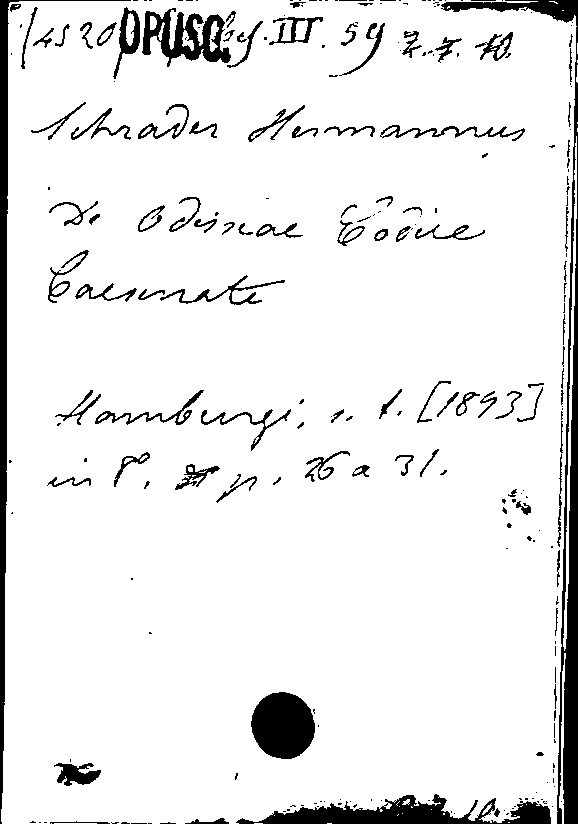 14520 OPUSC. Ces. III. 59 7.7.10.
Schrader Hermannus
De Odissiae Codice
Caesenate
Hamburgi, s. t. [1893]
in 8°. p. 26 a 31.